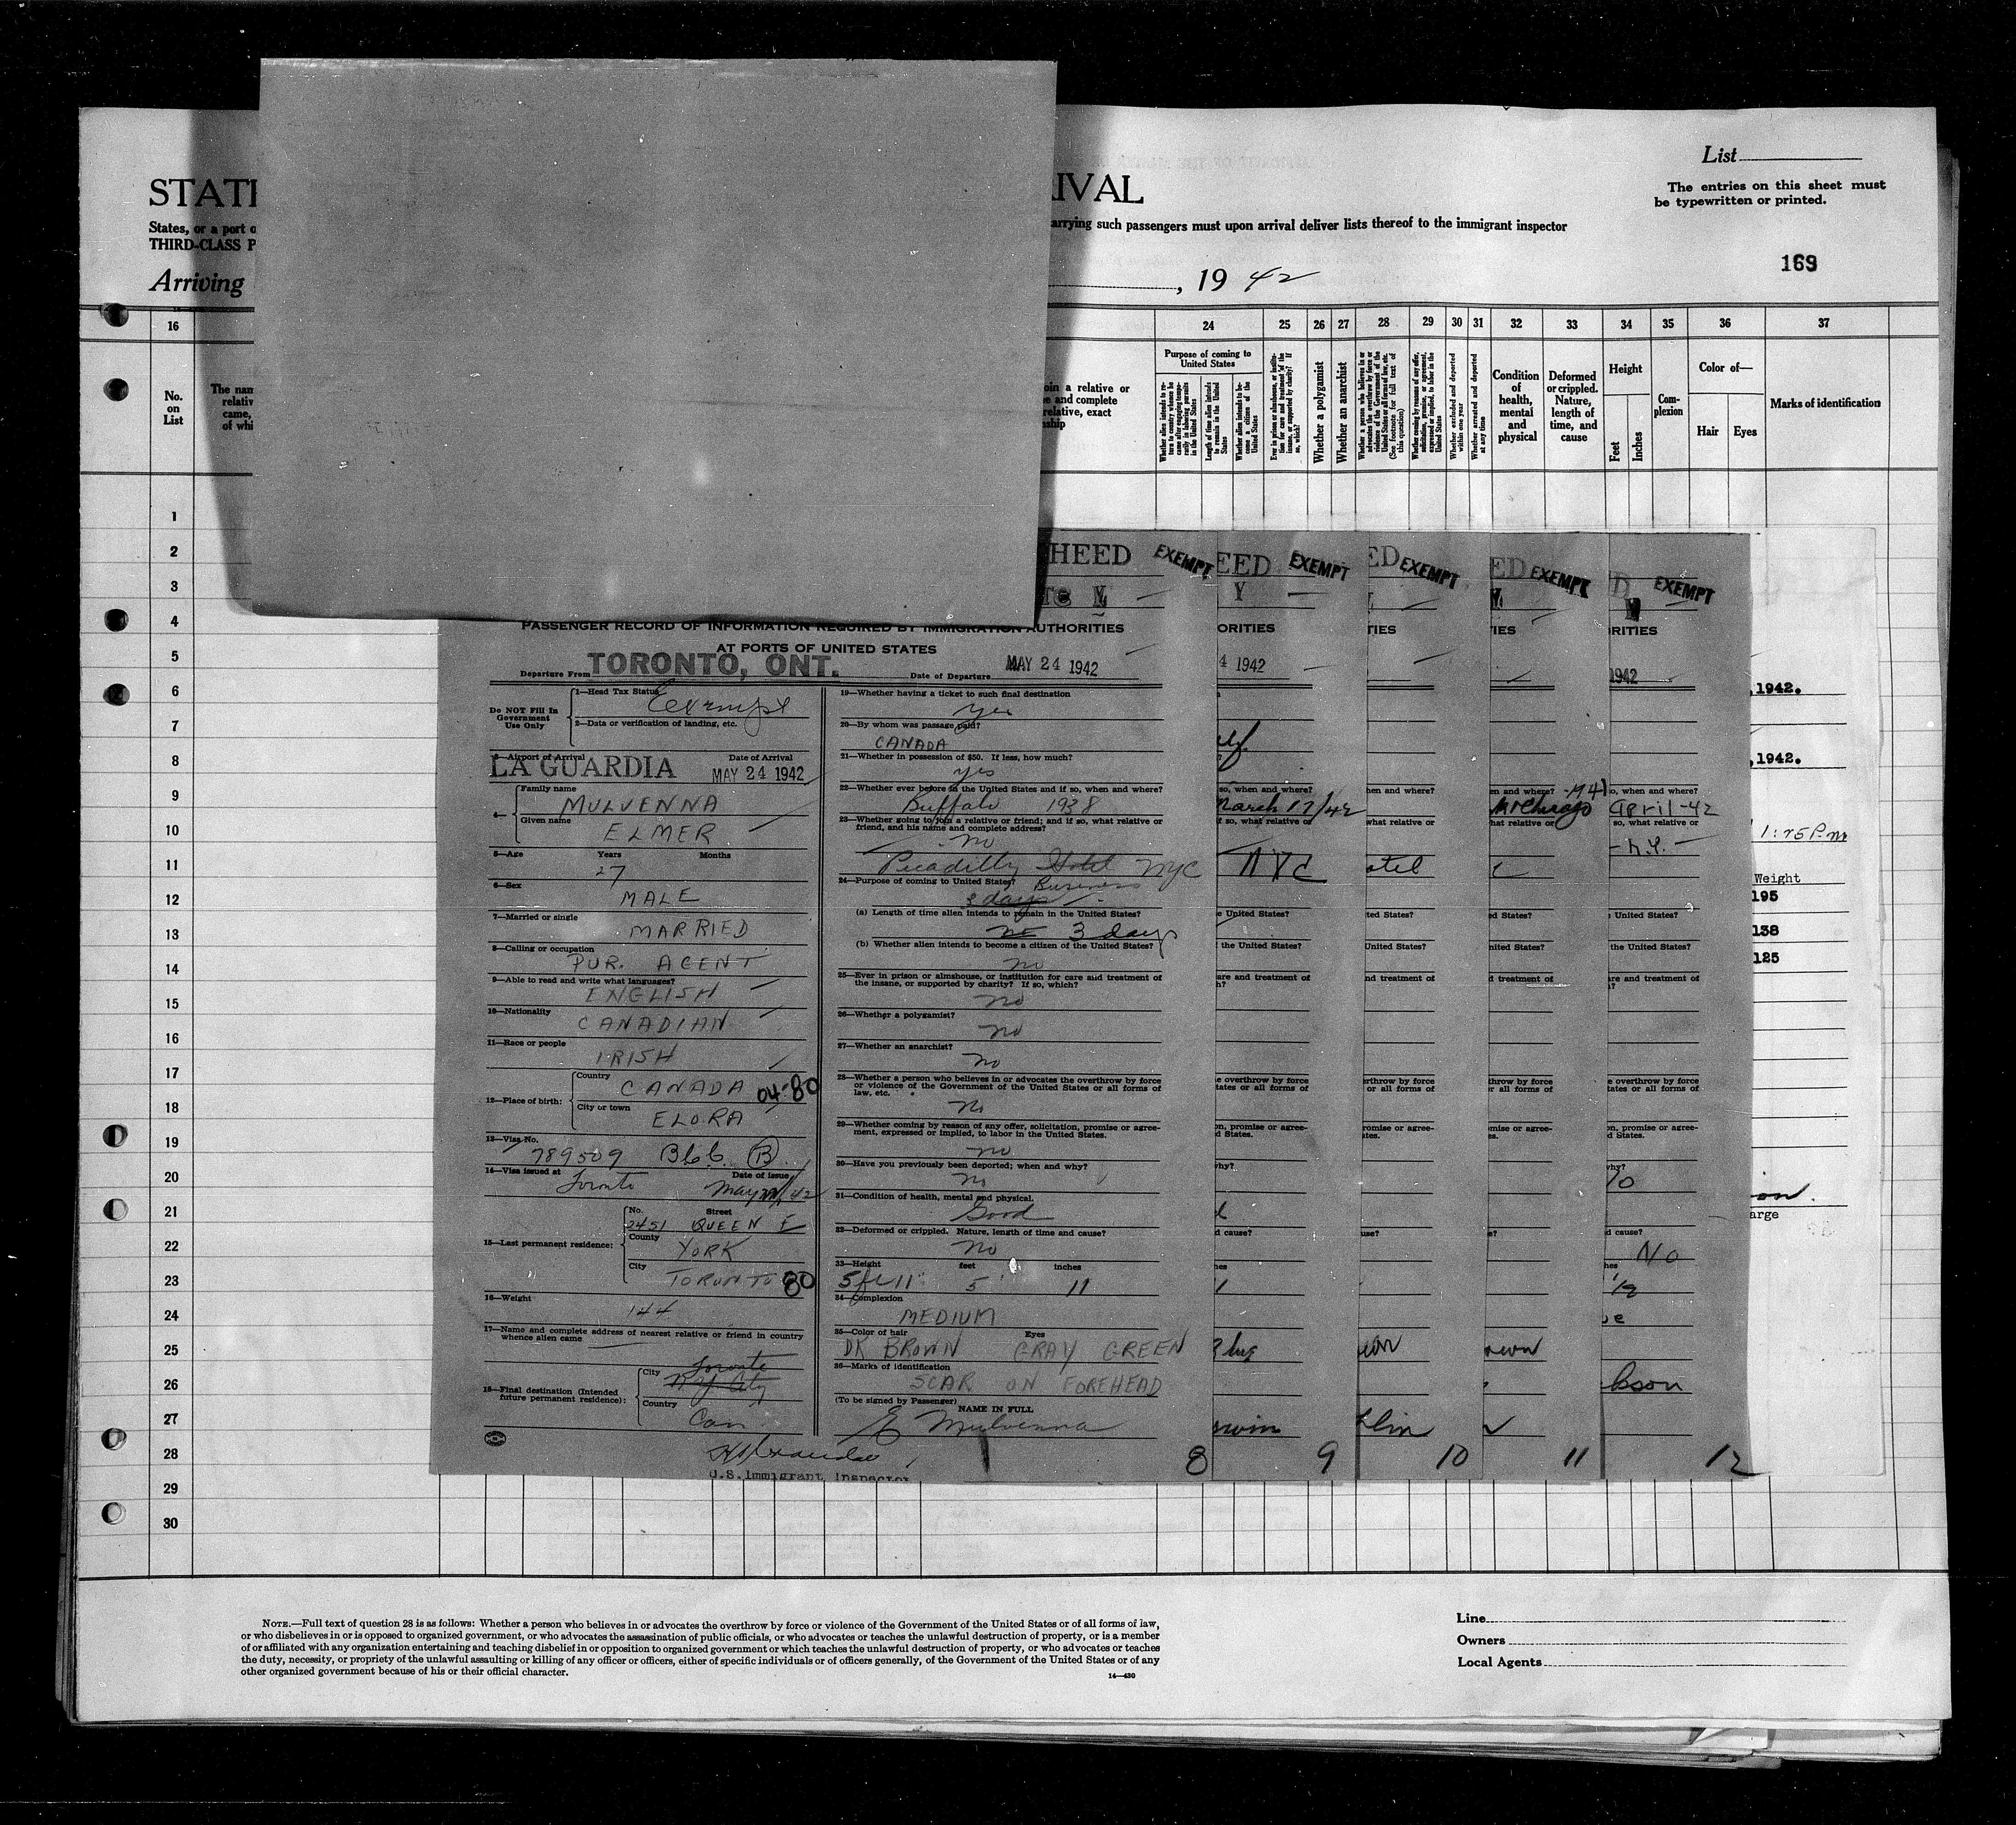 List
The entries on this sheet must
be typewritten or printed.
STATE
IVAL
States, or a port o
arrying such passengers must upon arrival deliver lists thereof to the immigrant inspector
THIRD-CLASS P
169
Arriving
, 19 42
16
24 25 26 27 28 29 30 31 32 33 34 35 36 37
No.
on
List
The nam
relativ
came,
of whi
oin a relative or
e and complete
relative, exact
ship
Purpose of coming to
United States
Whether alien intends to re-
turn to country whence he
came after engaging tempo-
rarily in laboring pursuits
in the United States
Length of time alien intends
to remain in the United
States
Whether alien intends to be-
come a citizen of the
United States
Ever in prison or almshouse, or institu-
tion for care and treatment of the
insane, or supported by charity? If
so, which?
Whether a polygamist
Whether an anarchist
Whether a person who believes in or
advocates the overthrow by force or
violence of the Government of the
United States or all forms of law, etc.
(See footnote for full text of
this question)
Whether coming by reason of any offer,
solicitation, promise, or agreement,
expressed or implied, to labor in the
United States
Whether excluded and deported
within one year
Whether arrested and deported
at any time
Condition
of
health,
mental
and
physical
Deformed
or crippled.
Nature,
length of
time, and
cause
Height
Feet
Inches
Com-
plexion
Color of—
Hair Eyes
Marks of identification
1
2
3
4
5
6
7
8
9
10
11
12
13
14
15
16
17
18
19
20
21
22
23
24
25
26
27
28
29
30
HEED EXEMPT
PASSENGER RECORD OF INFORMATION REQUIRED BY IMMIGRATION AUTHORITIES
AT PORTS OF UNITED STATES
Departure From TORONTO, ONT. Date of Departure MAY 24 1942
Do NOT Fill In
Government
Use Only
1—Head Tax Status Exempt
2—Data or verification of landing, etc.
3—Airport of Arrival Date of Arrival
LA GUARDIA MAY 24 1942
4—
Family name
MULVENNA
Given name
ELMER
5—Age Years Months
27
6—Sex
MALE
7—Married or single
MARRIED
8—Calling or occupation
PUR. AGENT
9—Able to read and write what languages?
ENGLISH
10—Nationality
CANADIAN
11—Race or people
IRISH
12—Place of birth:
Country
CANADA 04-80
City or town
ELORA
13—Visa No.
789509 B
14—Visa issued at Date of issue
Toronto May 42
15—Last permanent residence:
No. Street
2451 QUEEN E
County
YORK
City
TORONTO 80
16—Weight
144
17—Name and complete address of nearest relative or friend in country
whence alien came
18—Final destination (Intended
future permanent residence):
City
Toronto
N.Y. City
Country
Can
U.S. Immigrant Inspector
19—Whether having a ticket to such final destination
Yes
20—By whom was passage paid?
CANADA
21—Whether in possession of $50. If less, how much?
yes
22—Whether ever before in the United States and if so, when and where?
Buffalo 1938
23—Whether going to join a relative or friend; and if so, what relative or
friend, and his name and complete address?
No
Picadilly Hotel NYC
24—Purpose of coming to United States? Business
3 days
(a) Length of time alien intends to remain in the United States?
no 3 days
(b) Whether alien intends to become a citizen of the United States?
no
25—Ever in prison or almshouse, or institution for care and treatment of
the insane, or supported by charity? If so, which?
no
26—Whether a polygamist?
no
27—Whether an anarchist?
no
28—Whether a person who believes in or advocates the overthrow by force
or violence of the Government of the United States or all forms of
law, etc.
no
29—Whether coming by reason of any offer, solicitation, promise or agree-
ment, expressed or implied, to labor in the United States.
no
30—Have you previously been deported; when and why?
no
31—Condition of health, mental and physical.
Good
32—Deformed or crippled. Nature, length of time and cause?
no
33—Height feet inches
5 ft 11" 5' 11
34—Complexion
MEDIUM
35—Color of hair Eyes
DK BROWN GRAY GREEN
36—Marks of identification
SCAR ON FOREHEAD
(To be signed by Passenger)
NAME IN FULL
E Mulvenna
8
EED EXEMPT
Y
ORITIES
4 1942
so, when and where?
March 17/42
f so, what relative or
NYC
e United States?
the United States?
are and treatment of
e overthrow by force
tates or all forms of
on, promise or agree-
d States.
why?
d cause?
9
ED EXEMPT
TIES
hen and where?
what relative or
otel
ted States?
United States?
nd treatment of
rthrow by force
or all forms of
romise or agree-
ates.
use?
10
ED EXEMPT
TIES
en and where? -1941
hat relative or
ed States?
nited States?
d treatment of
hrow by force
r all forms of
omise or agree-
es.
e?
11
D EXEMPT
RITIES
1942
o, when and where?
April-42
so, what relative or
- N.Y. -
e United States?
the United States?
are and treatment of
e overthrow by force
tates or all forms of
on, promise or agree-
d States.
why?
d cause?
No
hes
kson
12
, 1942.
, 1942.
1:25 P.M
Weight
195
138
125
on.
arge
NOTE.—Full text of question 28 is as follows: Whether a person who believes in or advocates the overthrow by force or violence of the Government of the United States or of all forms of law,
or who disbelieves in or is opposed to organized government, or who advocates the assassination of public officials, or who advocates or teaches the unlawful destruction of property, or is a member
of or affiliated with any organization entertaining and teaching disbelief in or opposition to organized government or which teaches the unlawful destruction of property, or who advocates or teaches
the duty, necessity, or propriety of the unlawful assaulting or killing of any officer or officers, either of specific individuals or of officers generally, of the Government of the United States or of any
other organized government because of his or their official character.
14—430
Line
Owners
Local Agents